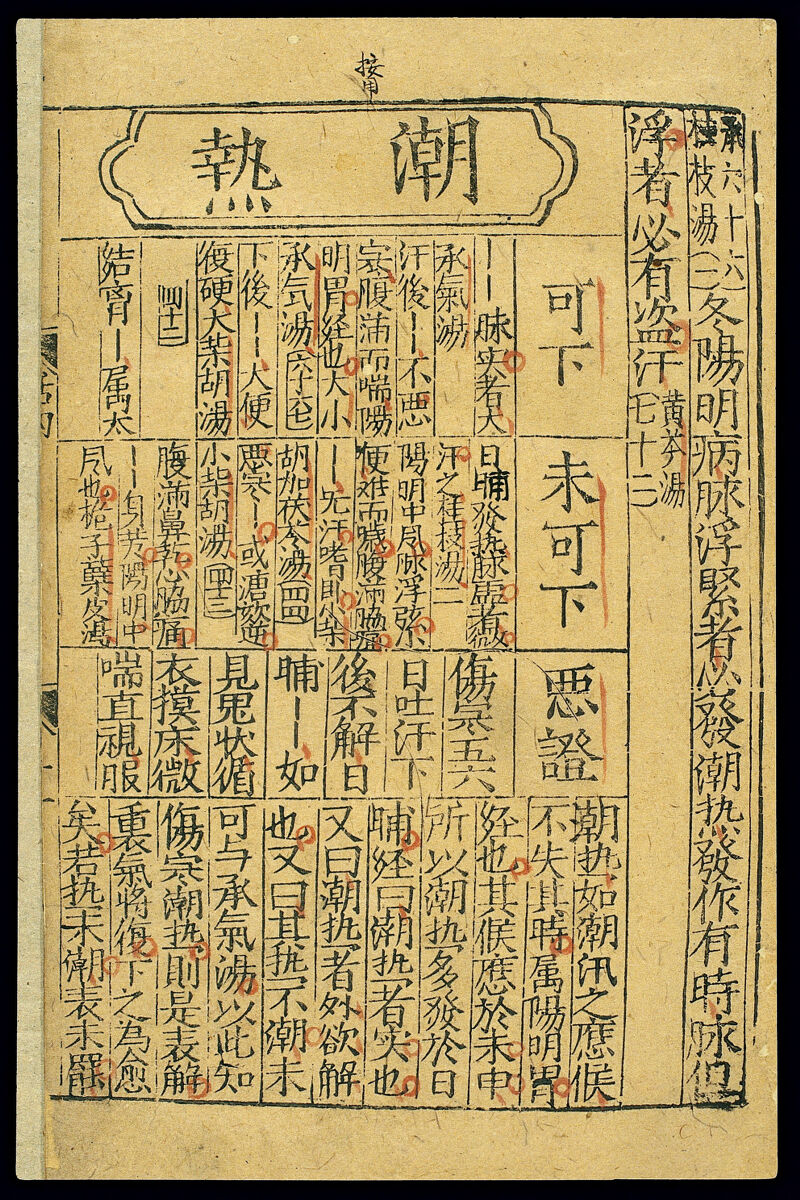 按用
承六十六
桂枝湯(一)冬陽明病脉浮緊者必發潮热發作有時脉但
浮者必有盗汗黄芩湯七十二
潮熱
可下
丨丨脉实者大
承氣湯
汗後丨丨不恶
寒腹满而喘陽
明胃经也大小
承気湯六十七
下後丨丨大便
復硬大柴胡湯
四十二
結胷丨属太
未可下
日晡發热脉虚者微
汗之桂枝湯一
陽明中风脉浮弦
便难而噦腹满脇
丨丨无汗嗜卧小柴
胡加茯苓湯四四
恶寒丨丨或溏欬逆
小柴胡湯四十三
腹满鼻乾心脇痛
丨丨身芳陽明中
风也梔子蘗皮湯
恶證
傷寒五六
日吐汗下
後不解日
晡丨丨如
見鬼状循
衣摸床微
喘直視服
潮热如潮汛之應候
不失其時属陽明胃
经也其候應於未申
所以潮热多發於日
晡经曰潮热者实也
又曰潮热者外欲解
也又曰其热不潮未
可与承氣湯以此知
傷寒潮热則是表解
裏氣將復下之為愈
矣若热未潮表未罷